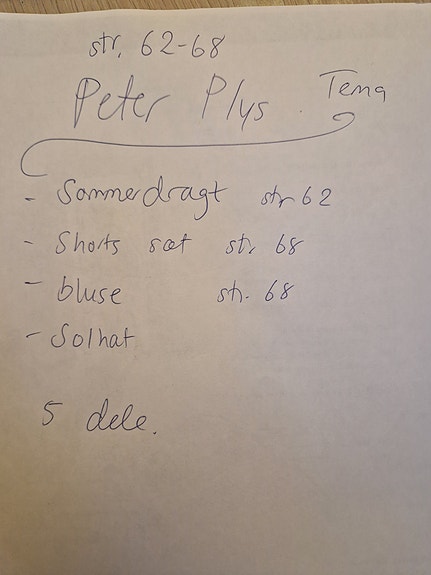 str. 62-68
Peter Plys. Tema
- Sommerdragt str 62
- Shorts sæt str. 68
- bluse str. 68
- Solhat
5 dele.